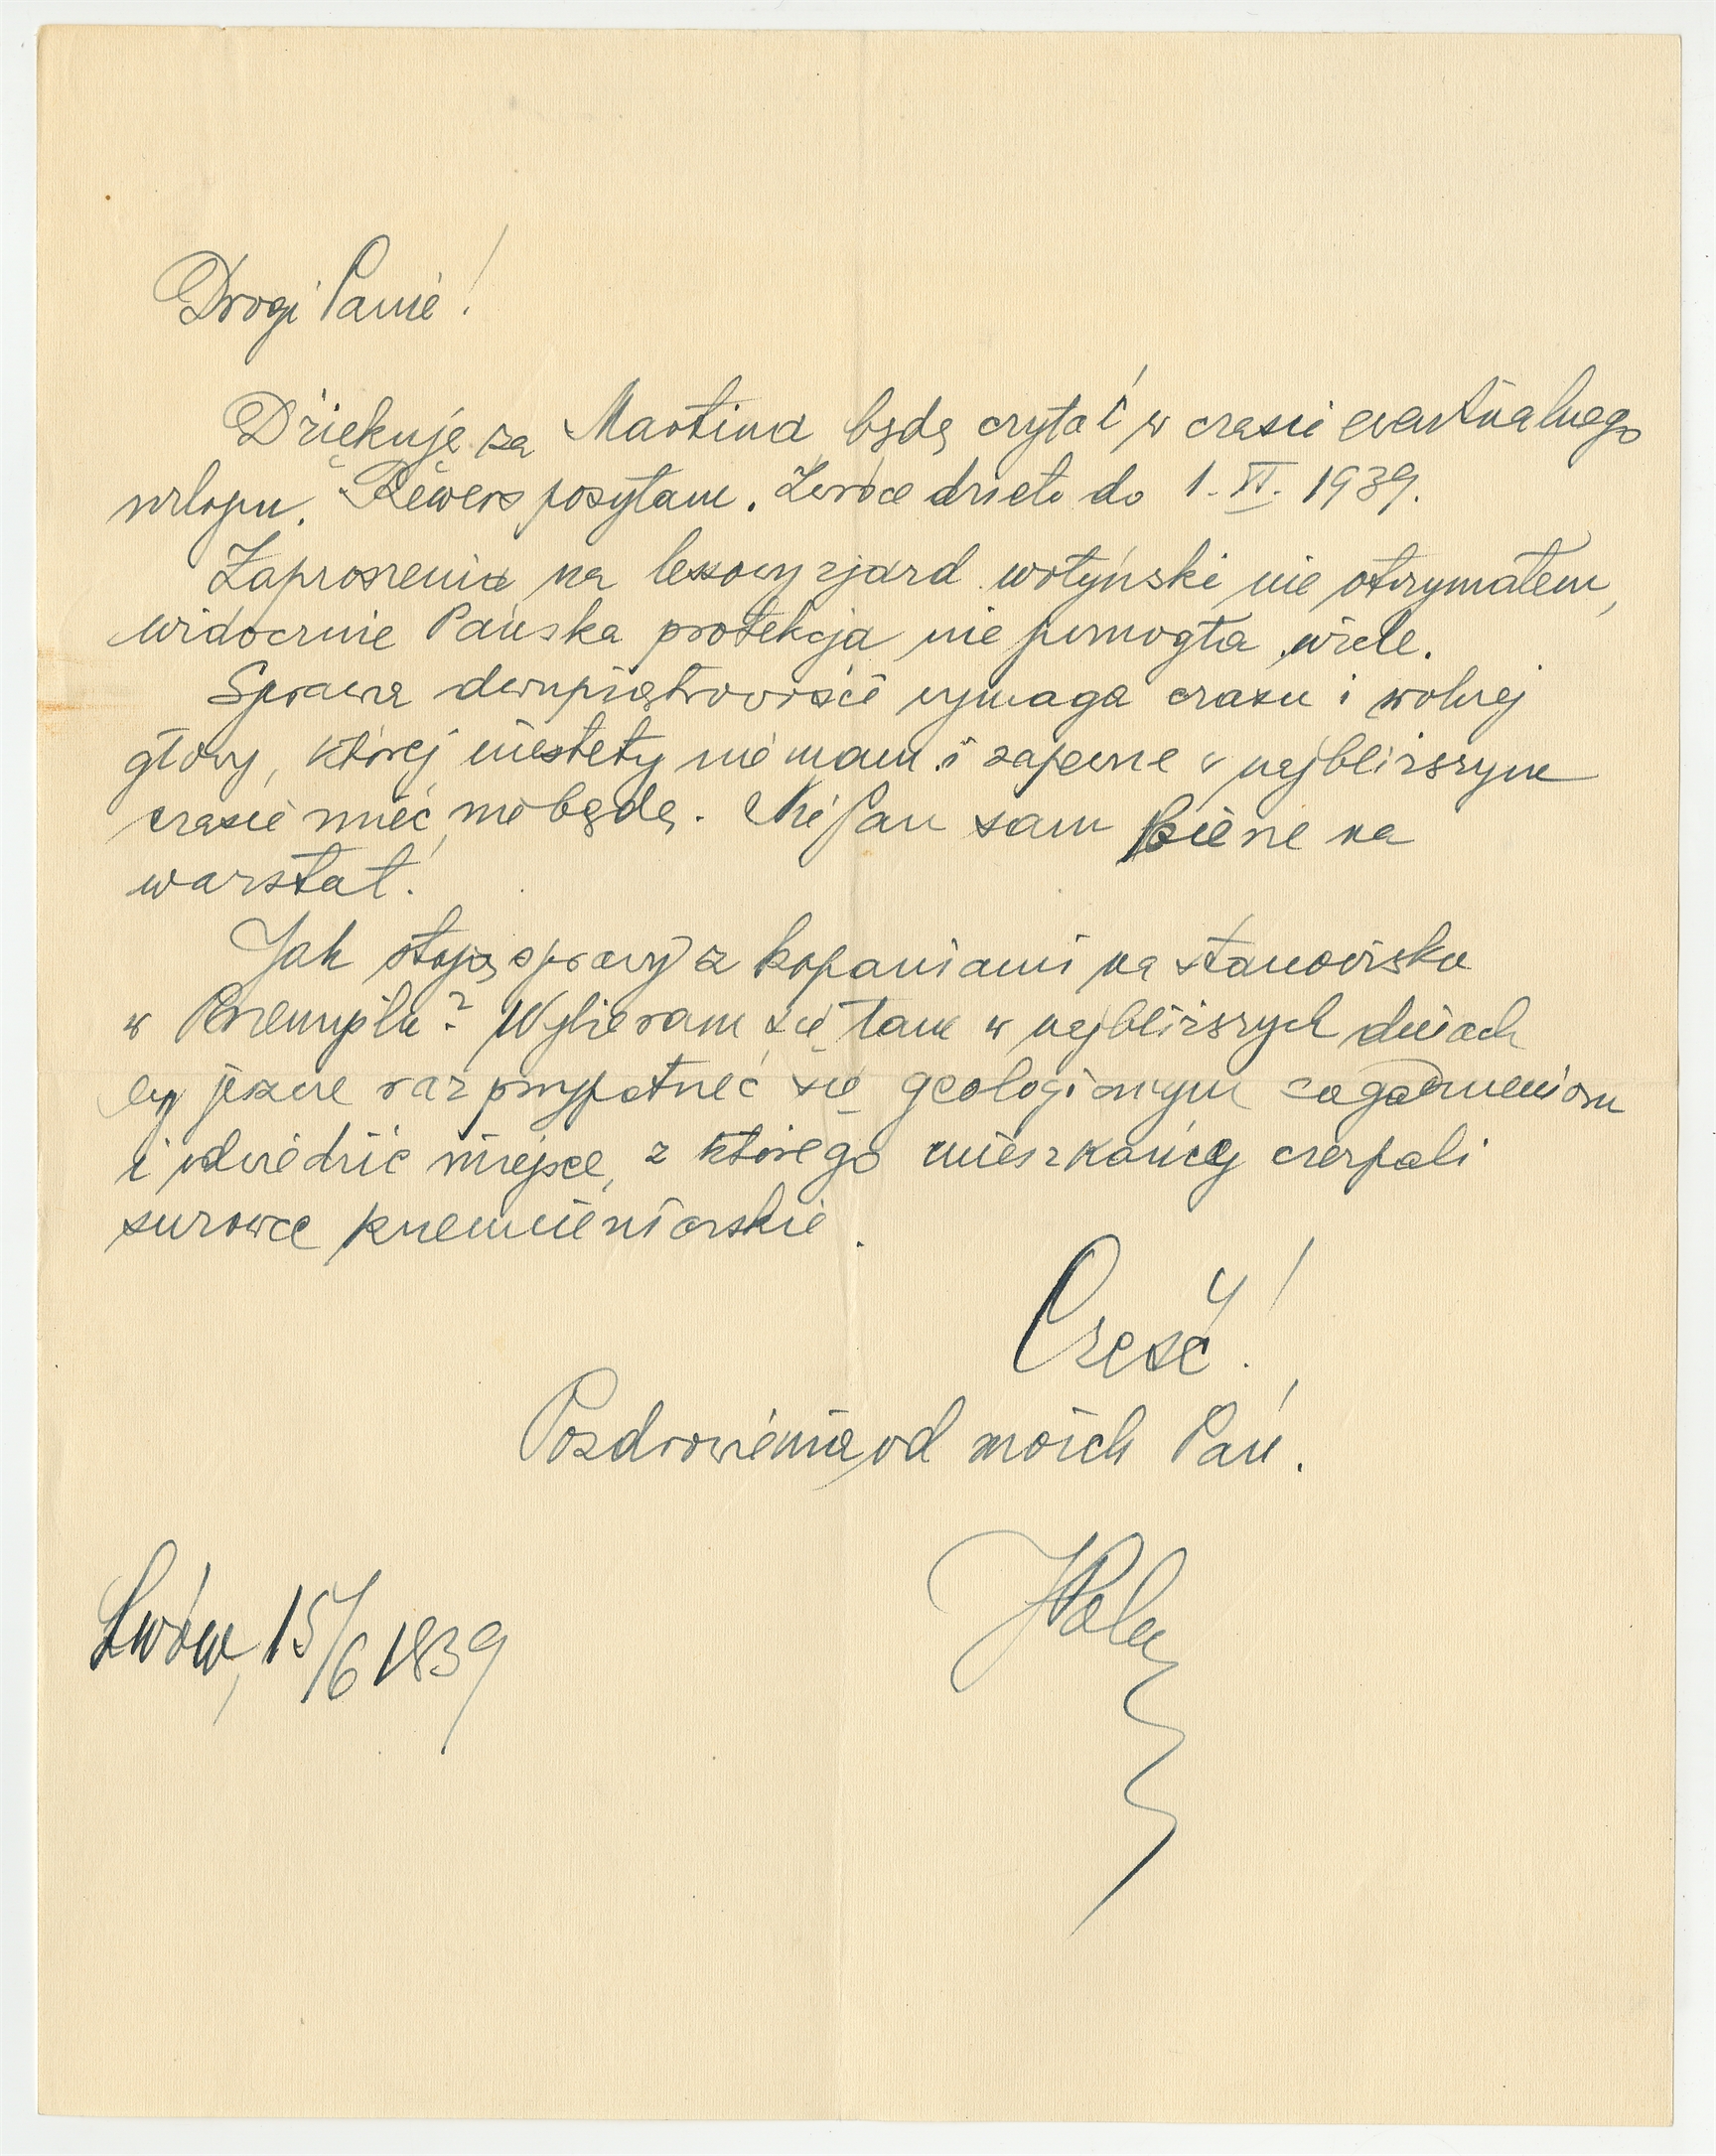 Drogi Panie!
Dziękuję za Martina będę czytać w czasie ewentualnego
urlopu. Rewers posyłam. Zwrócę dzieło do 1. VI. 1939.
Zaproszenia na lessowy zjazd wołyński nie otrzymałem,
widocznie Pańska protekcja nie pomogła wiele.
Sprawa dwupiętrowości wymaga czasu i wolnej
głowy, której niestety nie mam i zapewne w najbliższym
czasie mieć nie będę. Nié Pan sam bierze na
warsztat.
Jak stoją sprawy z kopaniami na stanowisku
w Przemyślu? Wybieram się tam w najbliższych dniach
by jeszcze raz przypatrzeć się geologicznym zagadnieniom
i odwiedzić miejsce, z którego mieszkańcy czerpali
surowce krzemieniarskie.
Cześć!
Pozdrowienia od moich Pań.
Lwów, 15/6 1939